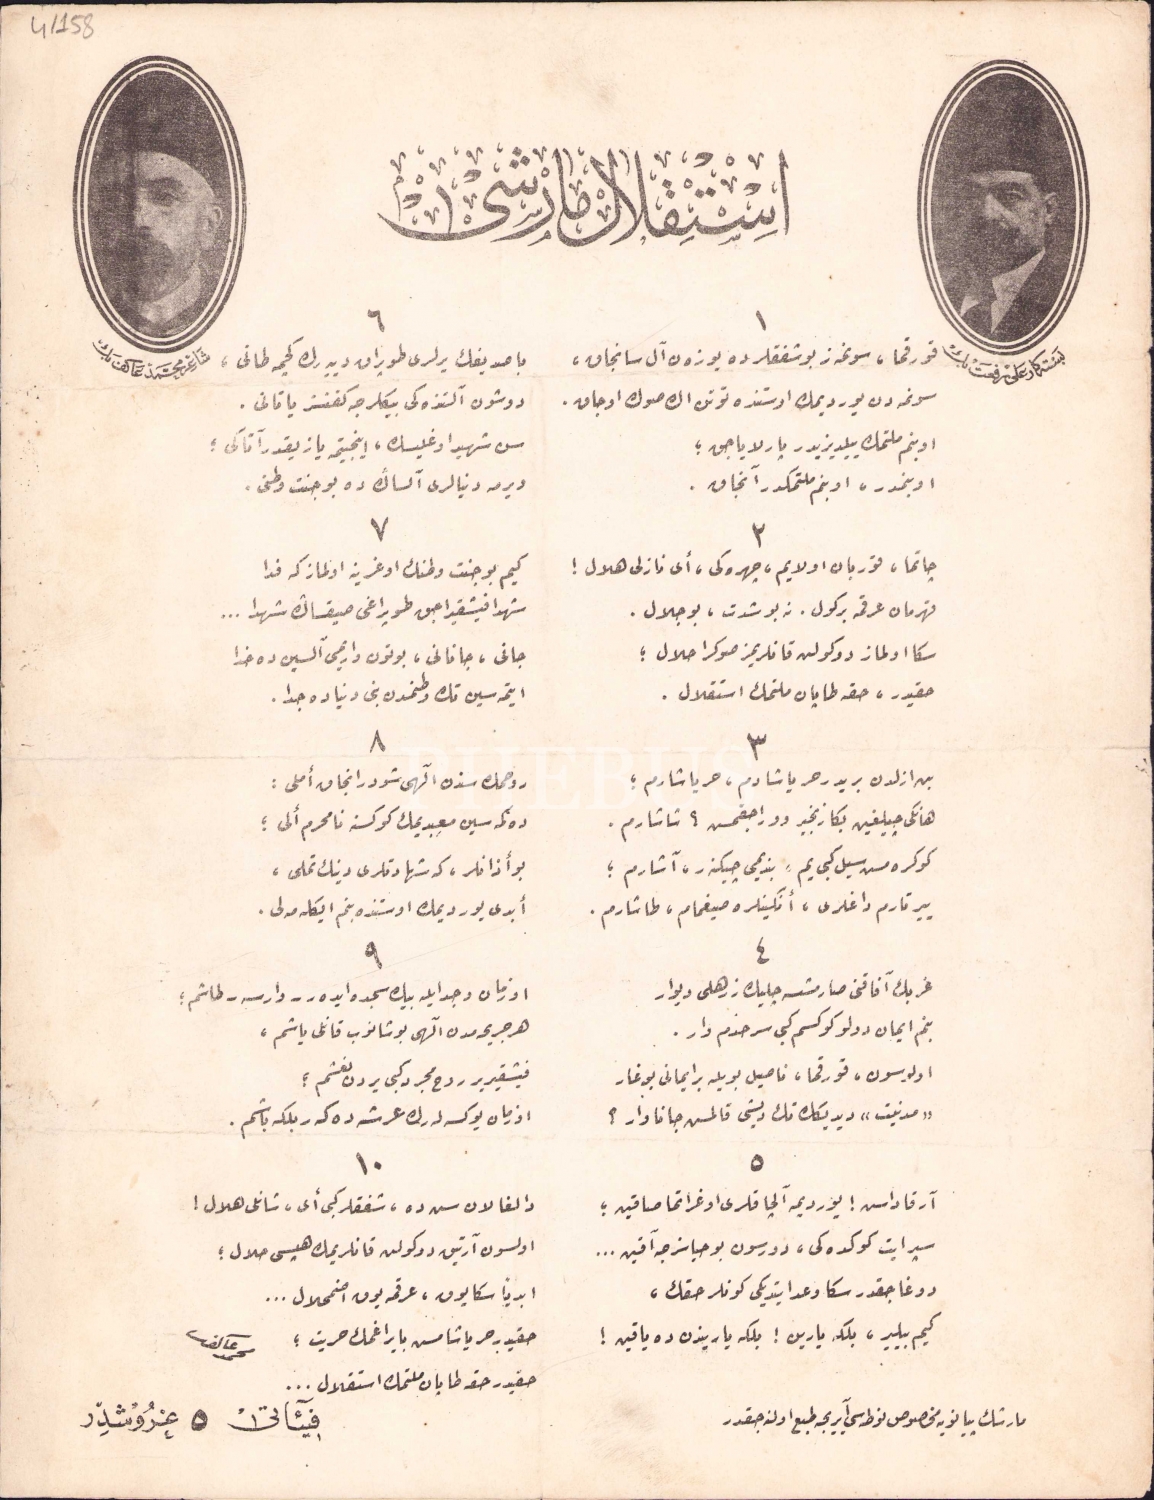 4/158
استقلال مارشی
بسته‌کار علی رفعت بك
شاعر محمد عاكف بك
١
قورقما ، سونمه‌ز بو شفقلرده یوزه‌ن آل سانجاق ،
سونمه‌دن یوردیمك اوستنده توتن اك صوك اوجاق .
او بنم ملتمك ییلدیزیدر پارلایاجق ؛
او بنمدر ، او بنم ملتمكدر آنجاق .
٢
چاتما ، قوربان اولایم ، چهره‌كی ، أی نازلی هلال !
قهرمان عرقمه بر كول . نه بو شدت ، بو جلال .
سكا اولماز دوكولن قانلریمز صوكرا حلال ؛
حقیدر ، حقه طاپان ملتمك استقلال .
٣
بن ازلدن بریدر حر یاشادم ، حر یاشارم ؛
هانكی چیلغین بكا زنجیر ووراجقمش ؟ شاشارم .
كوكره‌مش سیل كبی یم ، بندیمی چیكنه‌ر ، آشارم ؛
ییرتارم داغلری ، أنكینلره صیغمام ، طاشارم .
٤
غربك آفاقنی صارمشسه چلیك زرهلی دیوار
بنم ایمان دولو كوكسم كبی سرحدم وار .
اولوسون ، قورقما ، ناصیل بویله بر ایمانی بوغار
«مدنیت» دیدیكك تك دیشی قالمش جاناوار ؟
٥
آرقاداش ! یوردیمه آلچاقلری اوغراتما صاقین ؛
سپر ایت كوكده‌كی ، دورسون بو حیاسزجه آقین ...
دوغاجقدر سكا وعد ایتدیكی كونلر حقك ،
كیم بیلیر ، بلكه یارین ! بلكه یاریندن ده یاقین !
٦
باصدیغك یرلری طوپراق دییه‌رك كچمه طانی ،
دوشون آلتنده‌كی بیكلرجه كفنسز یاتانی .
سن شهید اوغلیسك ، اینجیتمه یازیقدر آتاكی ؛
ویرمه دنیالری آلساڭ ده بو جنت وطنی .
٧
كیم بو جنت وطنك اوغرینه اولماز كه فدا
شهدا فیشقیراجق طوپراغی صیقساڭ شهدا ...
جانی ، جانانی ، بوتون واریمی آلسین ده خدا
ایتمه‌سین تك وطنمدن بنی دنیاده جدا .
٨
روحمك سندن الٓهی شودر انجاق أملی :
ده‌كمه‌سین معبدیمك كوكسنه نامحرم ألی ؛
بو أذانلر ، كه شهادتلری دینك تملی ،
أبدی یوردیمك اوستنده بنم ایكله‌ملی .
٩
او زمان وجد ایله بیك سجده ایده‌ر ــ وارسه ــ طاشم ؛
هر جریحه‌مدن الٓهی بوشانوب قانلی یاشم ،
فیشقیریر روح مجرد كبی یردن نعشم ؛
او زمان یوكسه‌له‌رك عرشه ده‌كه‌ر بلكه باشم .
١٠
دالغالان سن ده ، شفقلر كبی أی ، شانلی هلال !
اولسون آرتیق دوكولن قانلریمك هپسی حلال ؛
ابدیاً سكا یوق ، عرقمه یوق اضمحلال ...
حقیدر حر یاشامش بایراغمك حریت ؛
حقیدر حقه طاپان ملتمك استقلال ...
محمد عاكف
مارشك پیانویه مخصوص نوطه‌سی آیریجه طبع اولنه‌جقدر
فیئاتی ٥ غروشدر
PHEBUS